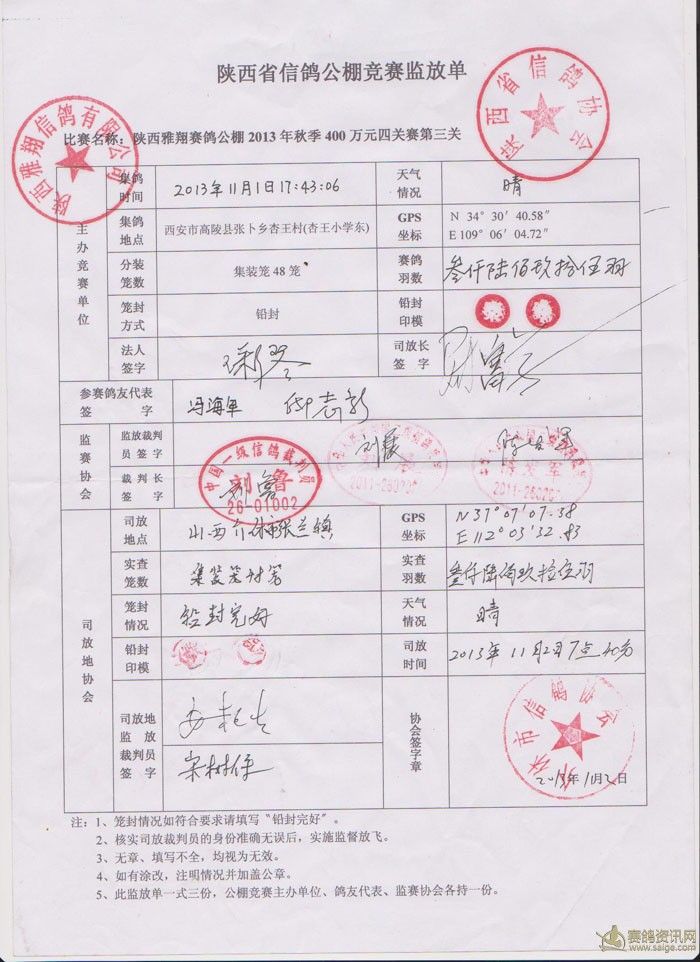 陕西省信鸽公棚竞赛监放单
陕西省信鸽协会
陕西雅翔信鸽有限公司
比赛名称：陕西雅翔赛鸽公棚 2013 年秋季 400 万元四关赛第三关
主办竞赛单位
集鸽时间 2013年11月1日17:43:06 天气情况 晴
集鸽地点 西安市高陵县张卜乡杏王村(杏王小学东) GPS坐标 N 34° 30′ 40.58″
E 109° 06′ 04.72″
分装笼数 集装笼 48 笼 赛鸽羽数 叁仟陆佰玖拾伍羽
笼封方式 铅封 铅封印模
法人签字 司放长签字
参赛鸽友代表签字 冯海军
监赛协会
监放裁判员签字 刘展
裁判长签字 刘鲁
中国一级信鸽裁判员
刘鲁
26-01002
司放地协会
司放地点 山西介休张兰镇 GPS坐标 N37°07′07.38
E 112°03′32.83
实查笼数 实查羽数 叁仟陆佰玖拾伍羽
笼封情况 铅封完好 天气情况 晴
铅封印模 司放时间 2013年11月2日7点40分
司放地监放裁判员签字 宋树保 协会签字章
市信鸽协会
注：1、笼封情况如符合要求请填写“铅封完好”。
2、核实司放裁判员的身份准确无误后，实施监督放飞。
3、无章、填写不全，均视为无效。
4、如有涂改，注明情况并加盖公章。
5、此监放单一式三份，公棚竞赛主办单位、鸽友代表、监赛协会各持一份。
赛鸽资讯网
www.saige.com